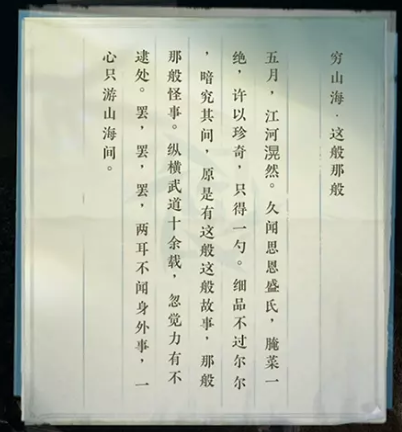 穷山海·这般那般
五月，江河滉然。久闻思恩盛氏，腌菜一
绝，许以珍奇，只得一勺。细品不过尔尔
，暗究其问，原是有这般这般故事，那般
那般怪事。纵横武道十余载，忽觉力有不
逮处。罢，罢，罢，两耳不闻身外事，一
心只游山海间。